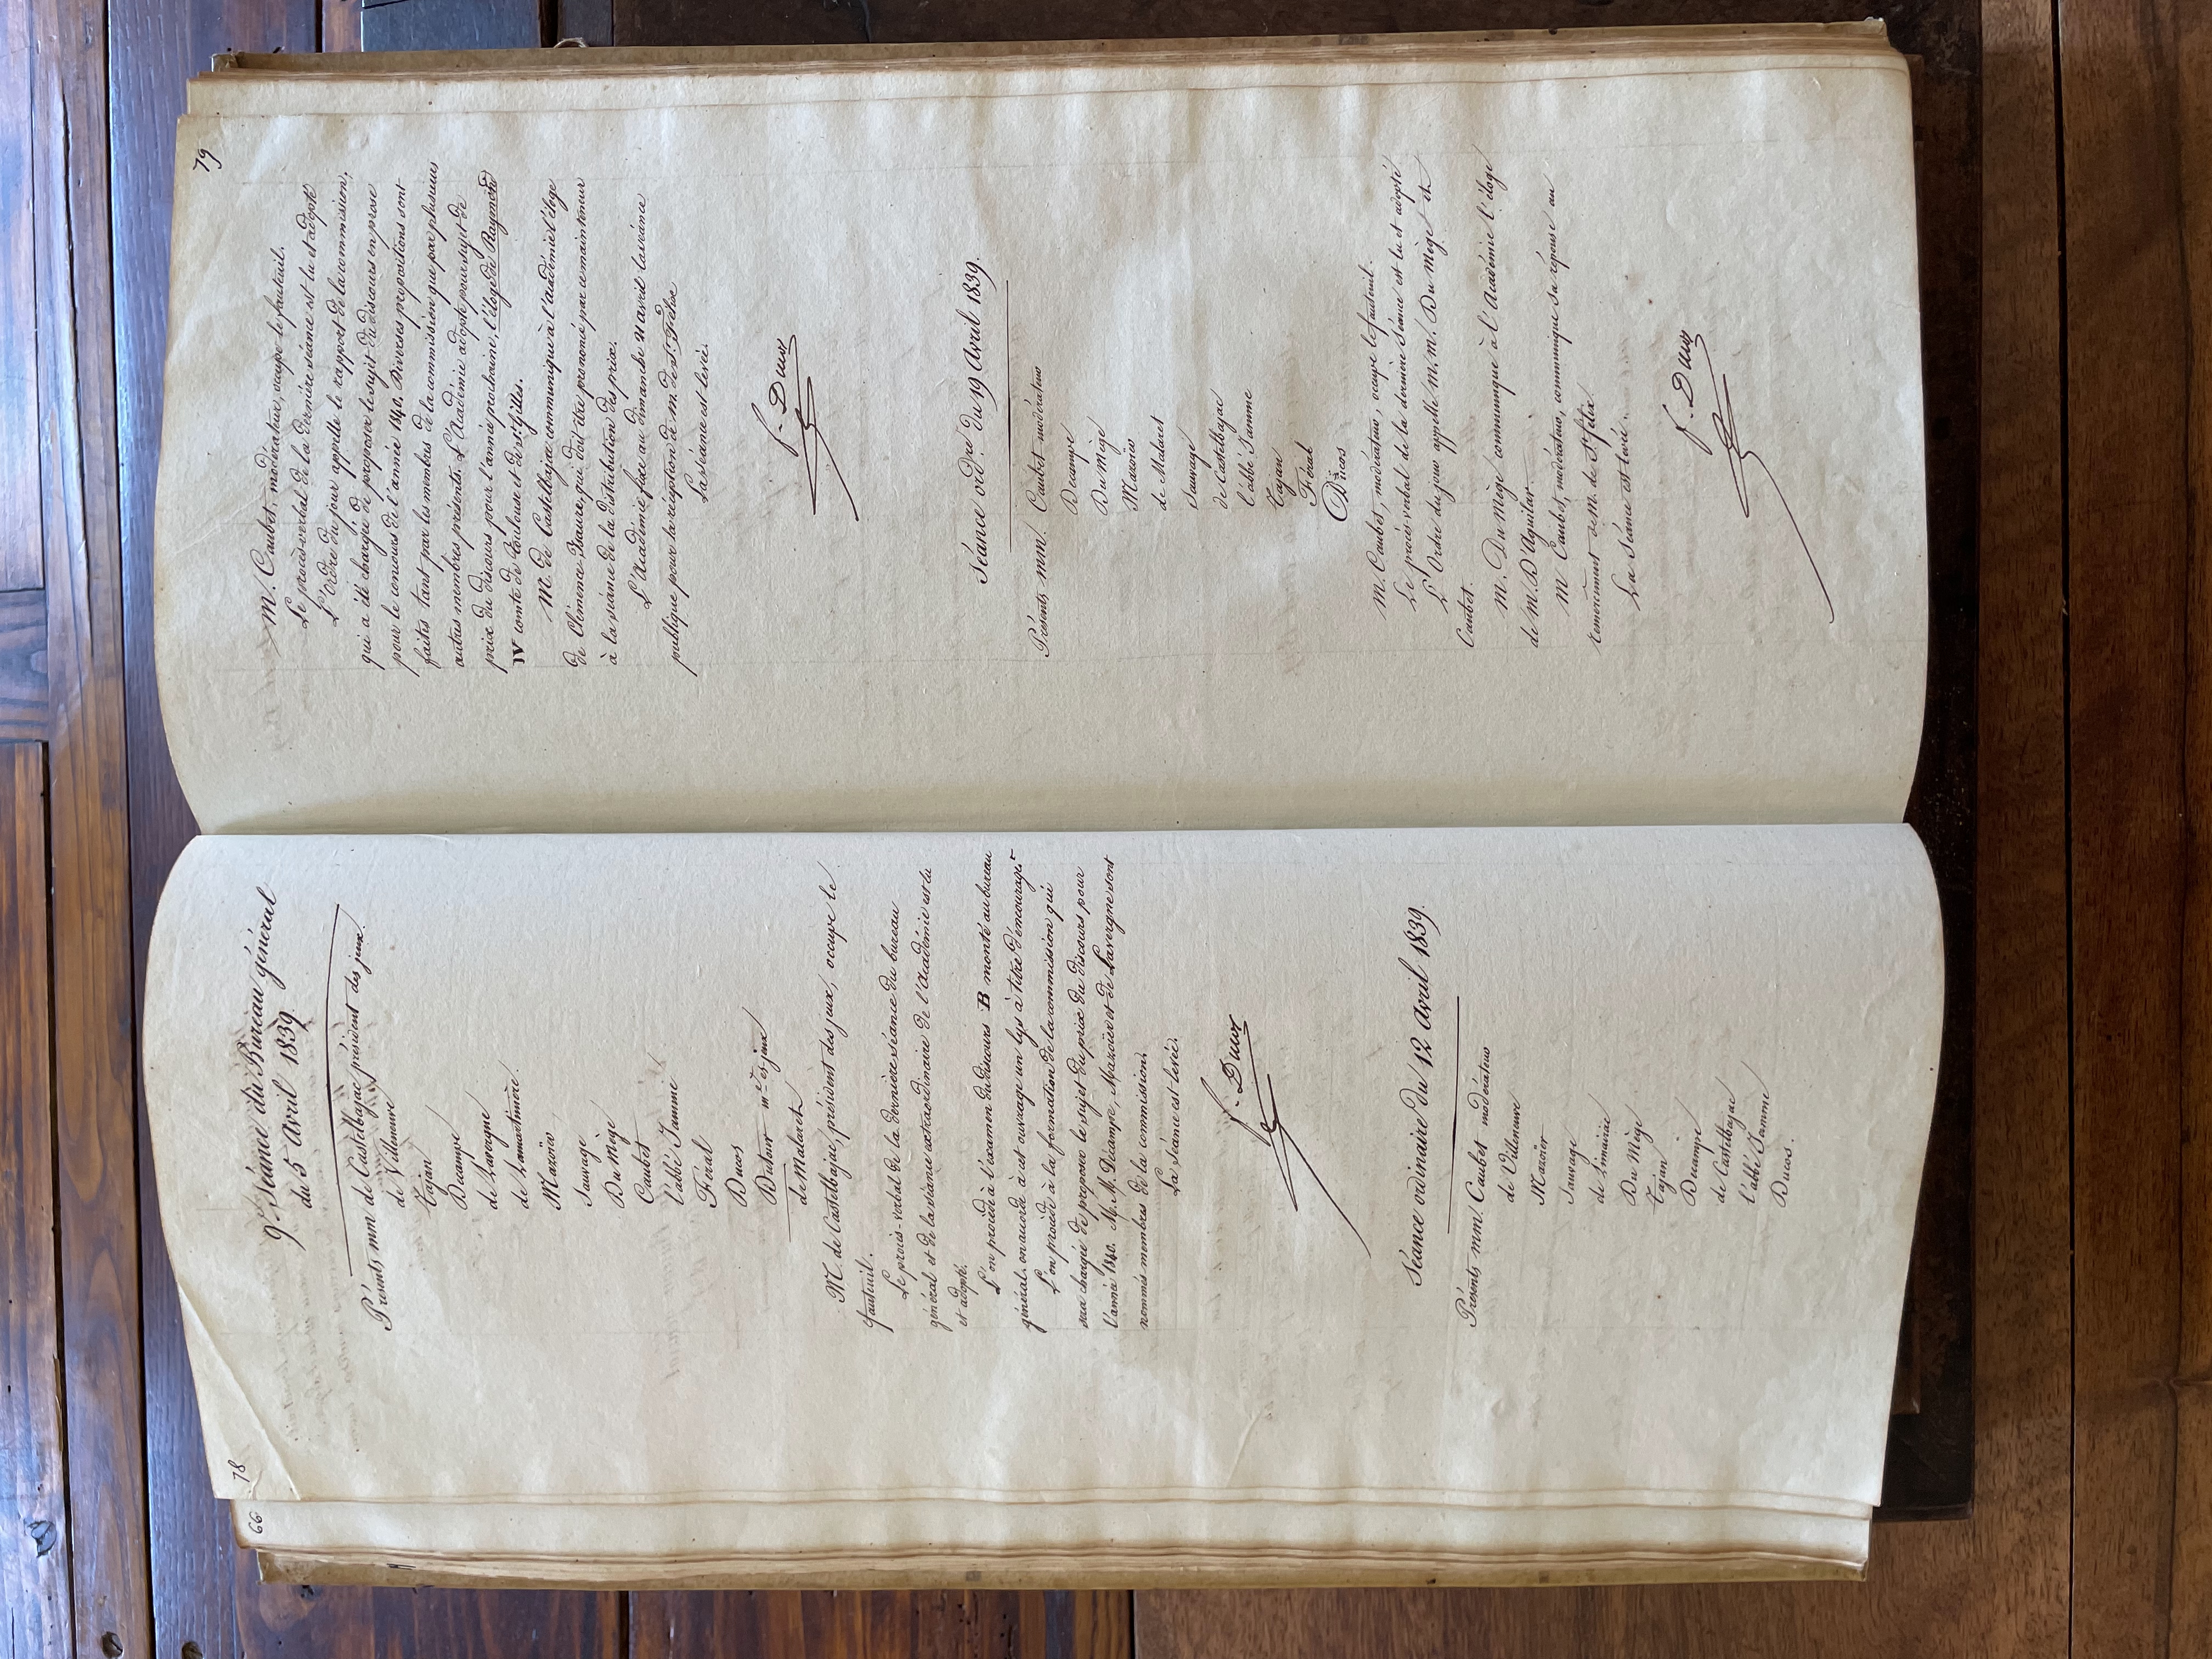 66
78
9.e Séance du Bureau général
du 5 Avril 1839
Présents mm de Castelbajac président des jeux.
de Villeneuve
Tajan
Decampe
de Lavergne
de Lamartinière.
Mazoïer
Sauvage
Du Mège
Caubet
l'abbé Jamme
Féral
Ducos
Dutour m.e ès jeux
de Malaret
M. de Castelbajac, président des jeux, occupe le
fauteuil.
Le procès-verbal de la dernière séance du bureau
général et de la séance extraordinaire de l'Académie est lu
et adopté.
L'on procède à l'examen du discours B monté au bureau
général. on accorde à cet ouvrage un lys à titre d'encouragt
L'on procède à la formation de la commission qui
sera chargée de proposer le sujet du prix du discours pour
l'année 1840. M. M. Décampe, Mazoïer et de Lavergne sont
nommés membres de la commission.
La séance est levée.
f. Ducos
Séance ordinaire du 12 Avril 1839.
Présents mm. Caubet modérateur
de Villeneuve
Mazoïer
Sauvage
de Limairac
Du Mège
Tajan
Decampe
de Castelbajac
l'abbé Jamme
Ducos.
79
M. Caubet, modérateur, occupe le fauteuil.
Le procès-verbal de la dernière séance est lu et adopté
L'Ordre du jour appelle le rapport de la commission,
qui a été chargée de proposer le sujet du discours en prose
pour le concours de l'année 1840. Diverses propositions sont
faites tant par les membres de la commission que par plusieurs
autres membres présents. L'Académie adopte pour sujet de
prix du discours pour l'année prochaine, l'éloge de Raymond
IV comte de Toulouse et de St Gilles.
M. de Castelbajac communique à l'académie l'éloge
de Clémence Isaure, qui doit être prononcé par ce mainteneur
à la séance de la distribution des prix.
L'Académie fixe au dimanche 21 avril la séance
publique pour la réception de m. de st. Félix
La séance est levée.
f. Ducos
Séance ord.re du 19 Avril 1839.
Présents mm. Caubet modérateur
Decampe
Du Mège
Mazoïer
de Malaret
Sauvage
de Castelbajac
l'abbé Jamme
Tajan
Féral
Ducos
M. Caubet, modérateur, occupe le fauteuil.
Le procès-verbal de la dernière Séance est lu et adopté
L'Ordre du jour appelle M. M. Du Mège et
Caubet.
M. Du Mège communique à l'Académie l'éloge
de M. D'Aguilar
M Caubet, modérateur, communique sa réponse au
remerciement de M. de St felix
La Séance est levée.
f. Ducos